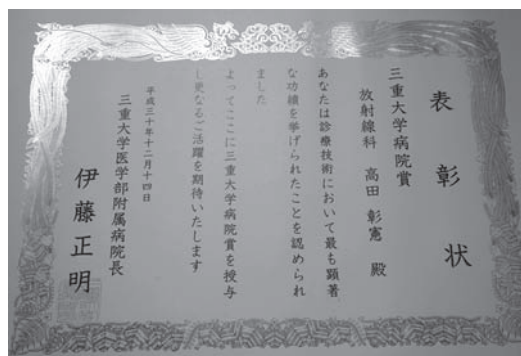 表彰状
三重大学病院賞
放射線科 高田 彰憲 殿
あなたは診療技術において最も顕著
な功績を挙げられたことを認められ
ました
よってここに三重大学病院賞を授与
し更なるご活躍を期待いたします
平成三十年十二月十四日
三重大学医学部附属病院長
伊藤正明